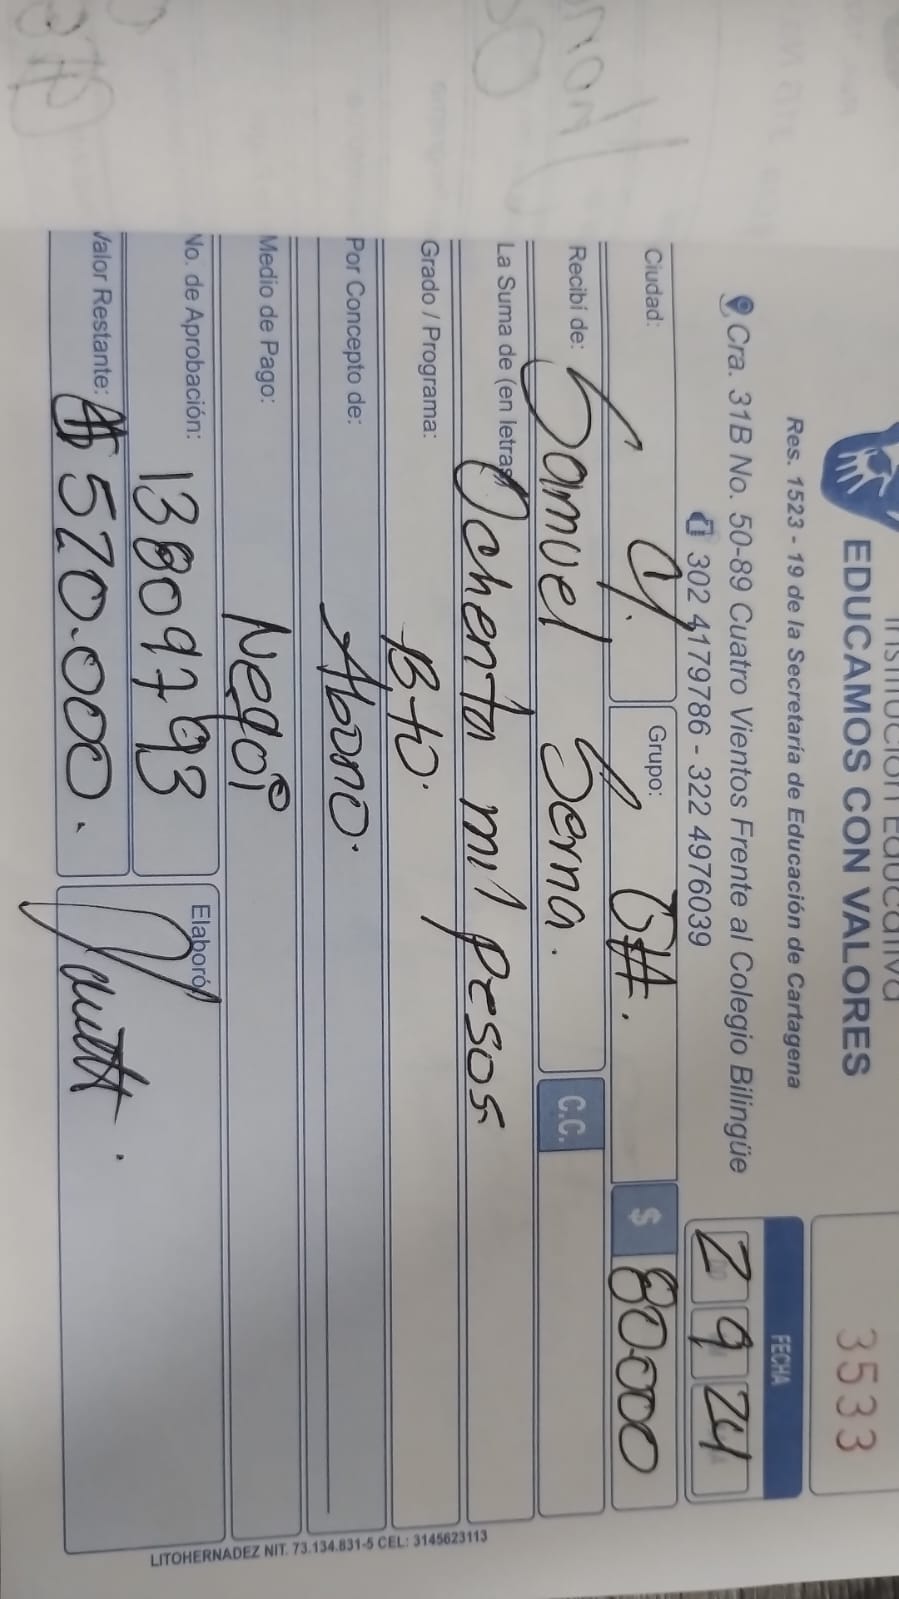 Institución Educativa
EDUCAMOS CON VALORES
3533
Res. 1523 - 19 de la Secretaría de Educación de Cartagena
FECHA
Cra. 31B No. 50-89 Cuatro Vientos Frente al Colegio Bilingüe
2 9 24
302 4179786 - 322 4976039
Ciudad: Grupo: $ 80.000
Recibí de: Samuel Serna. C.C.
La Suma de (en letras Ochenta mil pesos
Grado / Programa: Bto.
Por Concepto de: Abono.
Medio de Pago: Neqoi
No. de Aprobación: 13809793
Elaboró
Valor Restante: $ 570.000.
LITOHERNADEZ NIT. 73.134.831-5 CEL: 3145623113